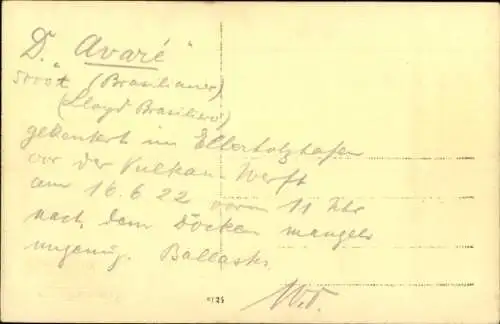 D. „Avaré“
5000t (Brasilianer)
(Lloyd Brasiliero)
gekentert im Ellerholzhafen
vor der Vulkan-Werft
am 16.6.22 vorm 11 Uhr
nach dem Docken mangels
ungenüg. Ballasts.
W.T.